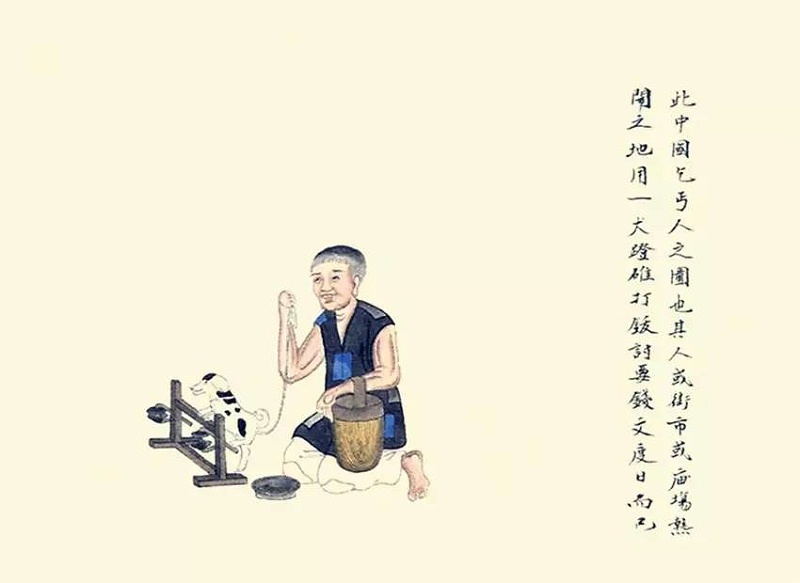 此中國乞丐人之圖也其人或街市或庙場熱
鬧之地用一犬蹬碓打鈸討要錢文度日而已